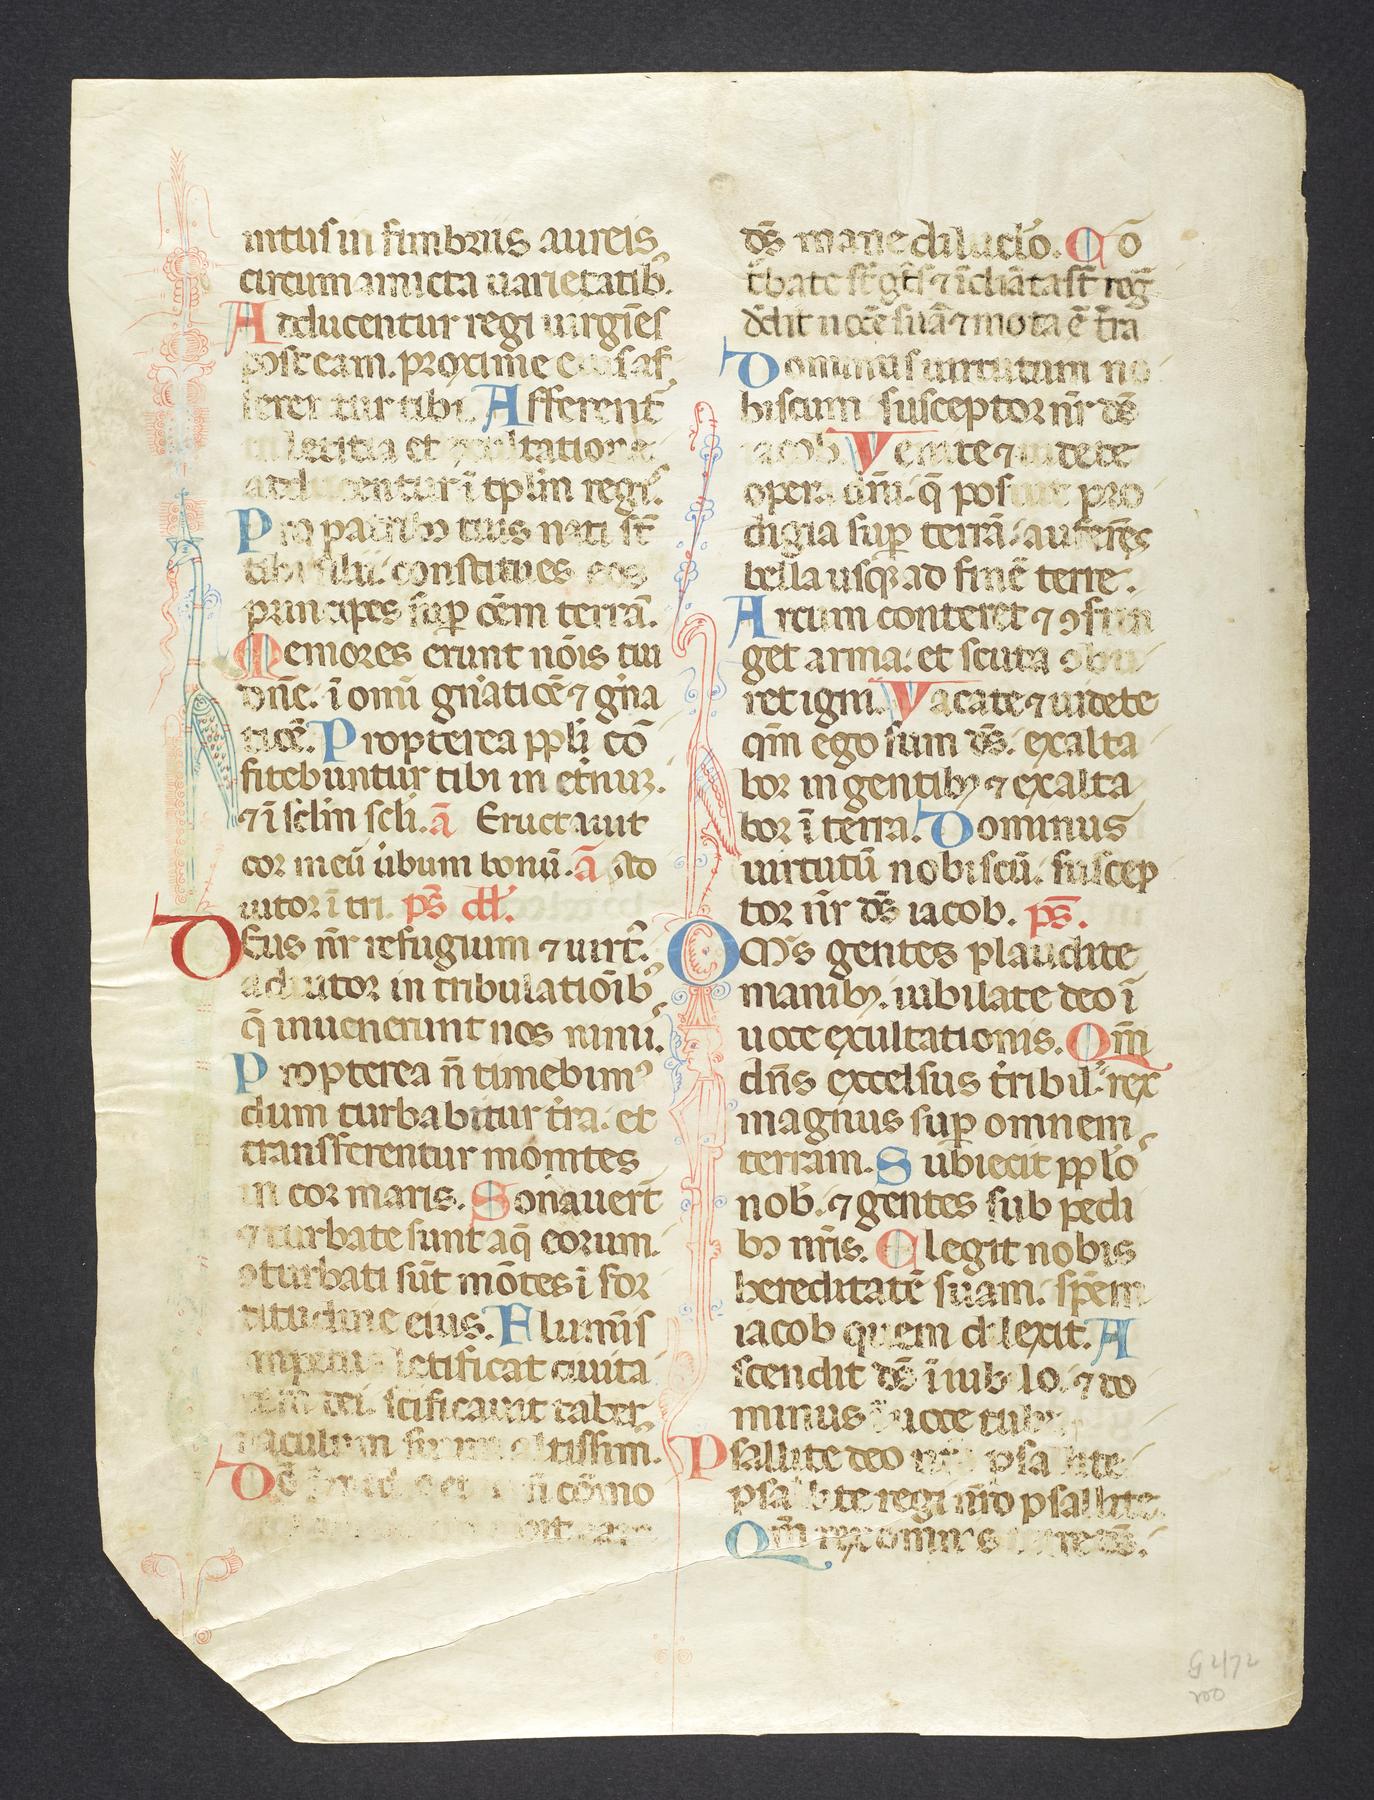 intus in fimbriis aureis
circumamicta uarietatib᷒.
Adducentur regi uirgīes
post eam. proxime eius af
ferentur tibi. Afferent᷒
in letitia et exultatione
adducentur ī tp̄lm regi᷒.
Pro patrib᷒ tuis nati st̄
tibi filii. constitues eos
principes sup̄ oēm terrā.
Memores erunt nōis tui
dn̄e. ī omī gn̄atiōe ⁊ gn̄a
tiōe. Propterea pp̄li cō
fitebuntur tibi in et̄nuꝫ.
⁊ ī sc̄lm sc̄li. ā Eructauit
cor meū ūbum bonū. ā Ad
iutor ī tri. ps̄ dd᷒.
DEus nr̄ refugium ⁊ uirt᷒.
adiutor in tribulatiōib᷒
q̄ inuenerunt nos nimi᷒.
Propterea n̄ timebim᷒
dum turbabitur tr̄a. et
transferentur montes
in cor maris. Sonauert̄
⁊ turbate sunt aq̄ eorum.
ꝯturbati sūt mōtes ī for
titudine eius. Flumīs
impetus letificat ciuita
tem dei. sc̄ificauit taber
naculum suum altissim᷒.
D̄s cōmo
ds̄ mane diluclo᷒. Cō
t᷒bate st̄ gt̄s ⁊ īcliāta st̄ reḡ
dedit uocē suā ⁊ mota ē tr̄a
Dominus uirtutum no
biscum susceptor nr̄ ds̄
iacob. Venite ⁊ uidete
opera dn̄i. q̄ posuit pro
digia sup̄ terrā. auferēs
bella usqꝫ ad finē terre.
Arcum conteret ⁊ ꝯfrin
get arma. et scuta ꝯbu
ret igni. Vacate ⁊ uidete
qm̄ ego sum ds̄. exalta
bor in gentibꝫ ⁊ exalta
bor ī terra. Dominus
uirtutū nobiscū. suscep
tor nr̄ ds̄ iacob. ps̄.
OMs gentes plaudite
manibꝫ. iubilate deo ī
uoce exultationis. Qm̄
dn̄s excelsus t̄ribil᷒. rex
magnus sup̄ omnem
terram. Subiecit pp̄lo᷒
nob᷒. ⁊ gentes sub pedi
bꝫ nr̄is. Elegit nobis
hereditatē suam. spēm
iacob quem dilexit. A
scendit ds̄ ī iubilo. ⁊ do
minus ī uoce tube
Psallite deo nr̄o psallite
psallite regi nr̄o psallite.
Qm̄ rex omnis terre ds̄.
G 2/72
200